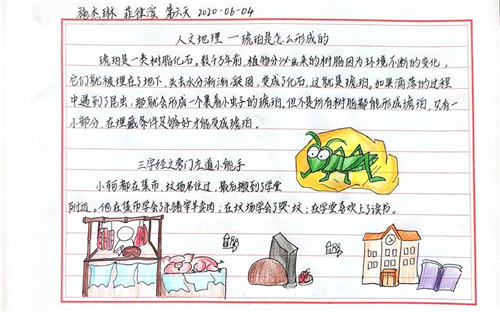 第六天 2020-06-04
人文地理 — 琥珀是怎么形成的
琥珀是一类树脂化石。数千万年前,植物分泌出来的树脂因为环境不断的变化,
它们就被埋在了地下,失去水分渐渐凝固,变成了化石,这就是琥珀。如果滴落的过程
中遇到了昆虫,那就会形成一个裹着小虫子的琥珀。但不是所有树脂都能形成琥珀,只有一
小部分,在埋藏条件足够好才能变成琥珀。
三字经之旁门左道小能手
小轲都在集市、坟场居住过,最后搬到了学堂
附近。他在集市学会了杀猪宰羊卖肉;在坟场学会了哭坟;在学堂喜欢上了读书。